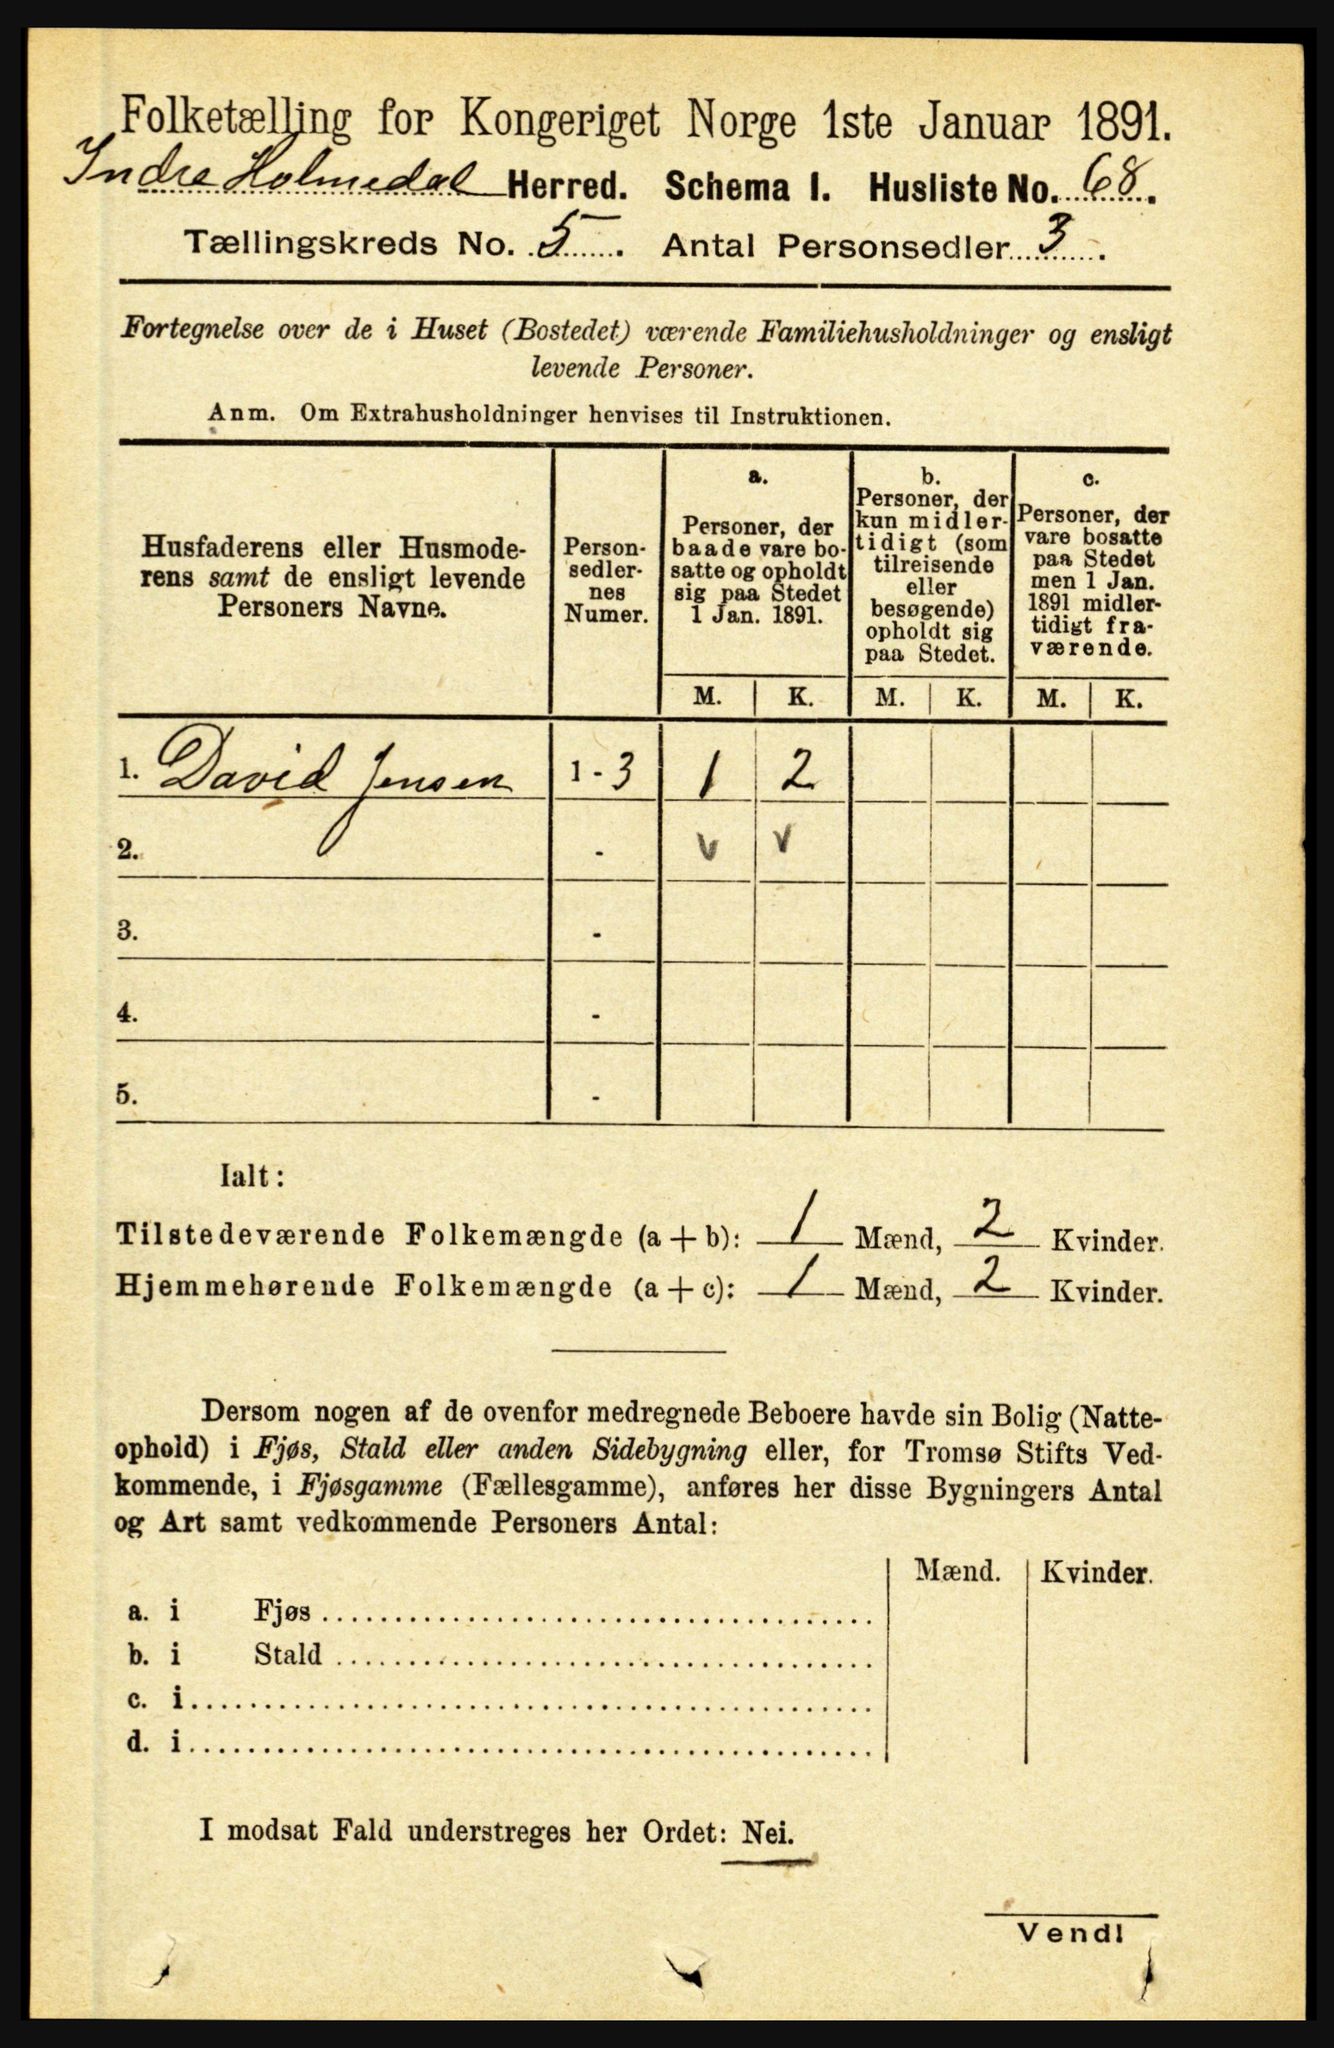 Folketælling for Kongeriget Norge 1ste Januar 1891.
Indre Holmedal Herred. Schema I. Husliste No. 68.
Tællingskreds No. 5. Antal Personsedler 3.
Fortegnelse over de i Huset (Bostedet) værende Familiehusholdninger og ensligt
levende Personer.
Anm. Om Extrahusholdninger henvises til Instruktionen.
Husfaderens eller Husmode-
rens samt de ensligt levende
Personers Navne.
Person-
sedler-
nes
Numer.
a.
Personer, der
baade vare bo-
satte og opholdt
sig paa Stedet
1 Jan. 1891.
b.
Personer, der
kun midler-
tidigt (som
tilreisende
eller
besøgende)
opholdt sig
paa Stedet.
c.
Personer, der
vare bosatte
paa Stedet
men 1 Jan.
1891 midler-
tidigt fra-
værende.
M. K. M. K. M. K.
1. David Jensen 1 - 3 1 2
2. - v v
3. -
4. -
5. -
Ialt:
Tilstedeværende Folkemængde (a + b): 1 Mænd, 2 Kvinder.
Hjemmehørende Folkemængde (a + c): 1 Mænd, 2 Kvinder.
Dersom nogen af de ovenfor medregnede Beboere havde sin Bolig (Natte-
ophold) i Fjøs, Stald eller anden Sidebygning eller, for Tromsø Stifts Ved-
kommende, i Fjøsgamme (Fællesgamme), anføres her disse Bygningers Antal
og Art samt vedkommende Personers Antal:
Mænd. Kvinder.
a. i Fjøs
b. i Stald
c. i
d. i
I modsat Fald understreges her Ordet: Nei.
Vend!